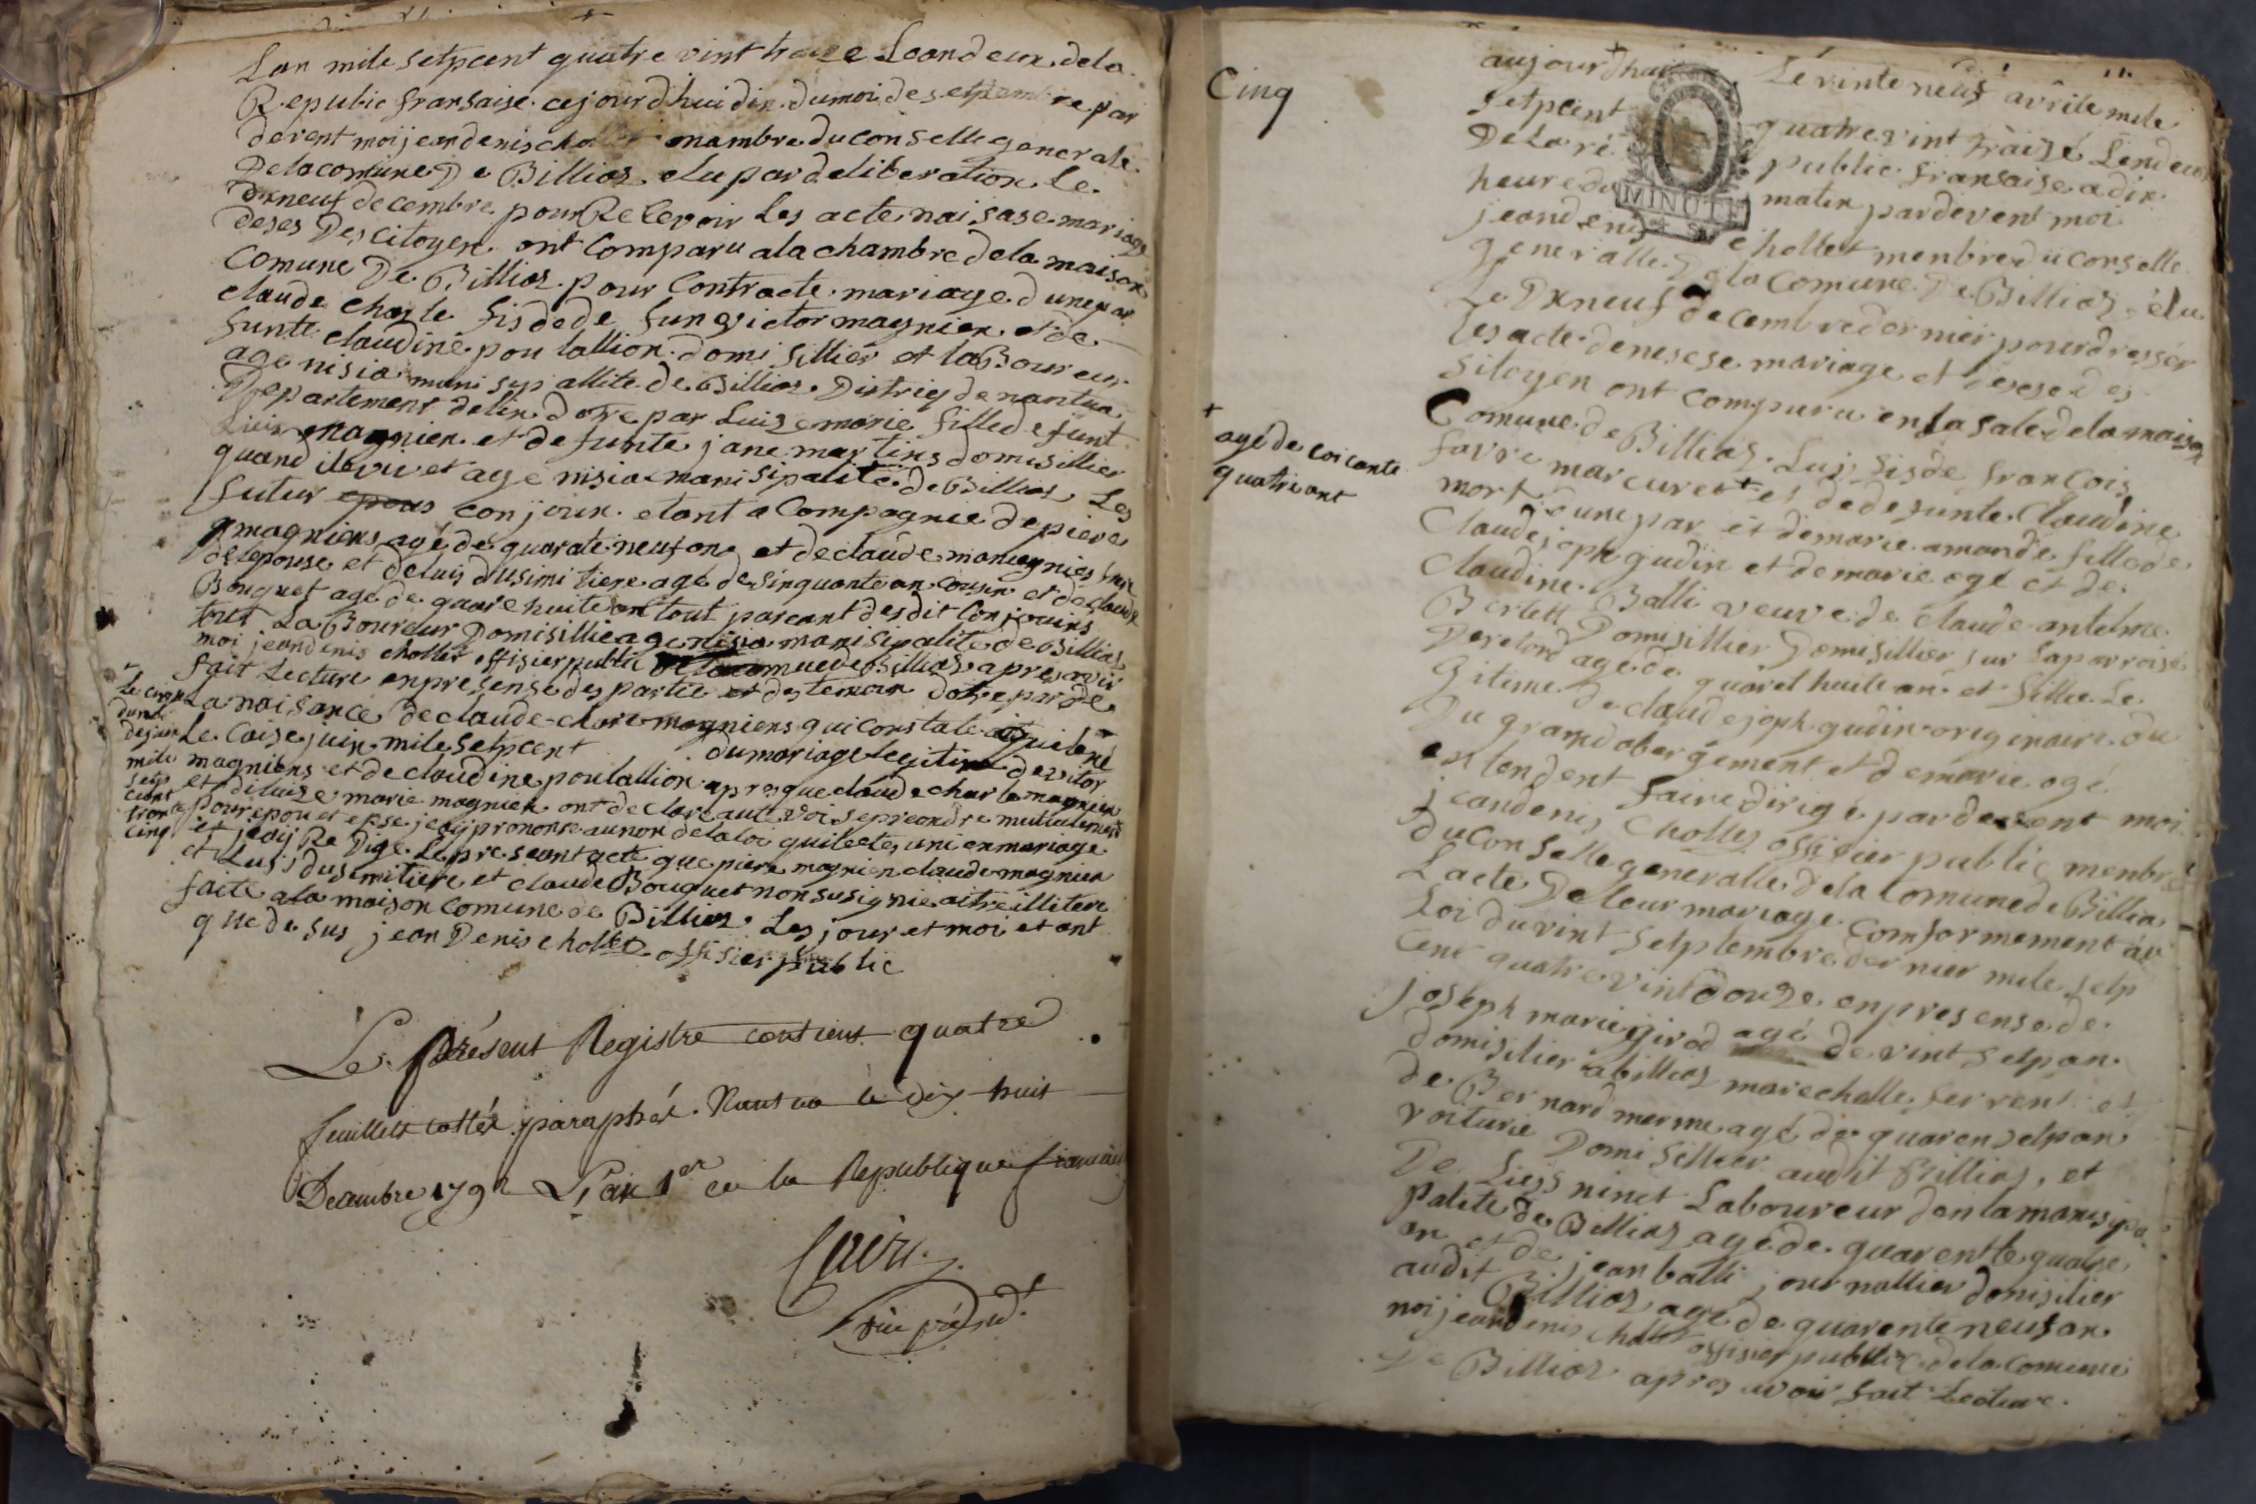 Lan mile setpcent quatre vint traize Loandeux dela
Republic fransaise cejourdhui dix dumoi de setembre par
devent moi jeandenis chollet mambre du conselle generale
Delacomune De Billias elu par deliberation Le
Dixneuf decembre pour Recevoir Les acte naisase mariage
deses Des citoyen ont Comparu ala chambre dela maison
Comune De Billias pour Contracte mariage dune par
claude charle fis dede fun victor magnien et de
funte claudine poulallion domisillier et laBoureur
age nisia munisypallite de Billias District de nantua
Departement delin dotre par Luize marie fille defunt
magnien et defunte jane martins domisillier
et age nisia manisipalite de Billias Les
futur epous conjoin etant a Compagnie de piere
magniens agé de quarate neuf ans et de claude magnien
delepouse et deluis dusimitiere agé de sinquante an cousin et de claude
Bouquet agé de quare huite an tout parcant desdit Conjouins
tous LaBoureur Domisillie a genisia manisipalite de Billias
moi jeandenis chollet offisier public delacomune de Billias apres avoir
fait Lecture enpresense des partie et des temoin dotre par de
La naisance de claude charle magniens qui constate quilene
Le cinq
dumoi
dejuin
mile
setp
cent
trante
cinq
Le Caise juin mile setpcent dumariage legitime devitor
magniens et de claudine poulallion apres que claude charle magnien
et de luize marie magnien ont declare aute voi se preondre mutuelement
pour epou et epse jeaij prononse aunon dela loi quilecte uni enmariage
et jeaij Redige Lepresant acte que piere magnien claude magnien
et Luis dusimitiere et claude Bouquet non susignie aitre illitere
faite ala maison comune de Billias Les jour et moi et ant
que de sus jean Denis chollet offisier public
Le présent Registre contient quatre
feuillets cottés paraphés. Nantua le dix huit
Decembre 1792 L'an 1er de la Republique francaise
vice présid.t
Cinq
aujourdhui Le vinte neuf avrile mile
setpcent quatrevint traize Landeux
DeLaré public fransaise a dix
heure du matin pardevent moi
MINUTE
jeandenis chollet menbre du conselle
generalle Dela Comune De Billias élu
Le Dixneuf decembre dernier pour dresser
Les acte denesese mariage et desese des
sitoyen ont comparu en la sale dela maison
Comune de Billias Luis fis de francois
favre marcuret + et dedefunte Claudine
+
agé de coicante
quatre ant
mort dune par et demarie amande fille de
Claudejoph gudin et demarie agé et de
Claudine Balli veuve de claude antelme
Berlett Domisillier Domisillier sur laparroise
Darelord agé de quaret huite an et fillie Le
gitime de claudejoph gudin originaire du
Du grand obergement et demarie agé
entendent faire dirigé par devent moi
jeandenis Chollet offisier public menbre
Du Conselle generalle dela Comune de Billia
Lacte De leur mariage comformement au
Loi du vint setptembre dernier mile setp
Cent quatrevint douze enpresense de
joseph marie girod agé de vint setpan
domisilier abillias marechalle ferrent et
de Bernard merme agé de quaren setpan
voiturie Domisillier audit Billias, et
De Liegs ninet Laboureur dan lamanisy
palite de Billias agé de quarentte quatre
an et de jean balli journallier domisilier
audit Billias agé de quarente neuf an
moi jeandenis chollet offisier public dela comune
De Billias apres avoir fait Lecture